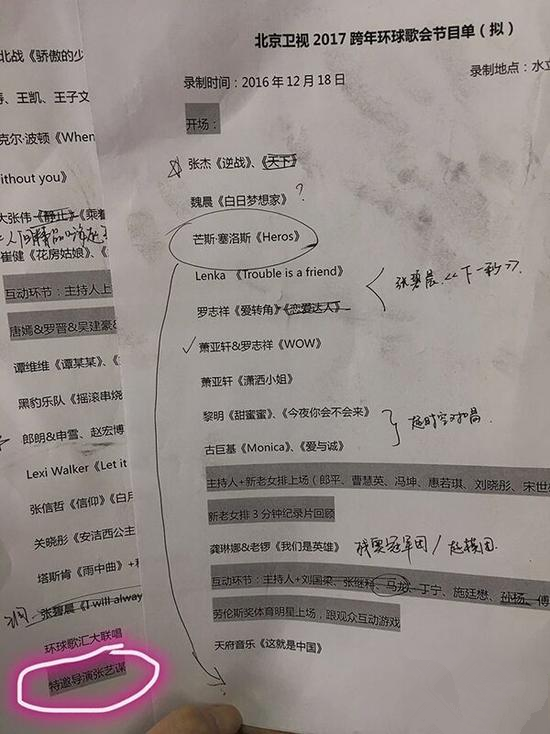 北京卫视 2017 跨年环球歌会节目单（拟）
录制时间：2016 年 12 月 18 日
录制地点：水立
开场：
张杰《逆战》、《天下》
魏晨《白日梦想家》?
芒斯·塞洛斯《Heros》
Lenka 《Trouble is a friend》
张碧晨《下一秒》.
罗志祥《爱转角》《恋爱达人》
萧亚轩&罗志祥《WOW》
萧亚轩《潇洒小姐》
黎明《甜蜜蜜》、《今夜你会不会来》
古巨基《Monica》、《爱与诚》
主持人+新老女排上场（郎平、曹慧英、冯坤、惠若琪、刘晓彤、宋世
新老女排 3 分钟纪录片回顾
龚琳娜&老锣《我们是英雄》
互动环节：主持人+刘国梁、张继科、马龙、丁宁、施廷懋、孙杨、傅
劳伦斯奖体育明星上场，跟观众互动游戏
天府音乐《这就是中国》
北战《骄傲的少
、王凯、王子文
克尔·波顿《When
ithout you》
大张伟《静止》《乘着
崔健《花房姑娘》、
互动环节：主持人上
唐嫣&罗晋&吴建豪&
谭维维《谭某某》、
黑豹乐队《摇滚串烧
郎朗&申雪、赵宏博
Lexi Walker《Let it
张信哲《信仰》《白月
关晓彤《安洁西公主
塔斯肯《雨中曲》+
张碧晨《I will alway
环球歌汇大联唱
特邀导演张艺谋